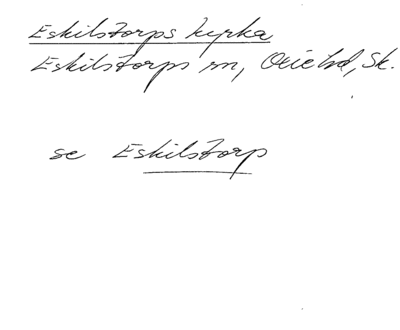 Eskilstorps kyrka
Eskilstorps sn, Oxie hd, Sk.
se Eskilstorp